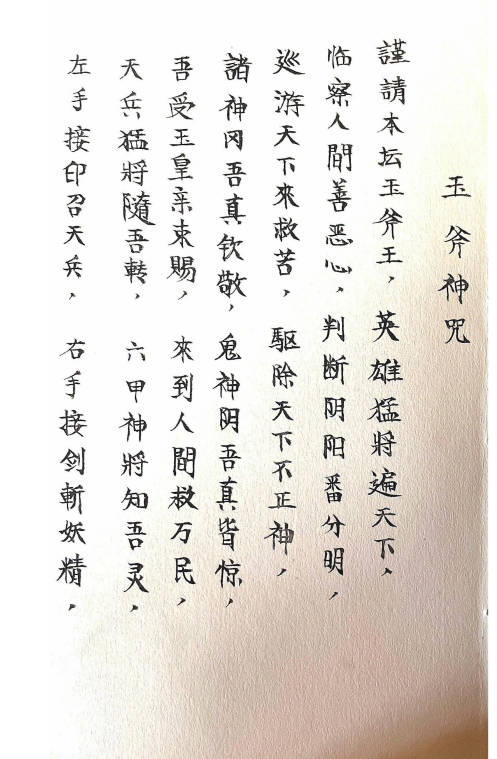 玉斧神咒
謹請本坛玉斧王，英雄猛將遍天下、
临察人間善恶心，判断阴阳番分明，
巡游天下來救苦，驅除天下不正神，
諸神冈吾真钦敬，鬼神阴吾真皆惊，
吾受玉皇亲束賜，來到人間救万民，
天兵猛將隨吾轉，六甲神將知吾灵，
左手接印召天兵，右手接剑斬妖精，